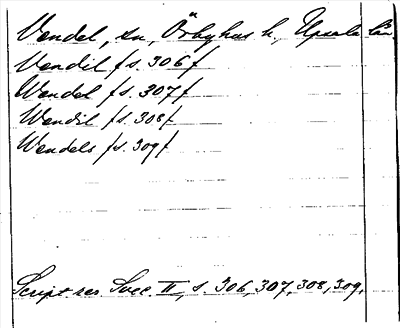 Vendel, sn, Örbyhus h., Upsala län.
Vendil /s. 306/
Wendel /s. 307/
Wendil /s. 308/
Wendels /s. 309/
Script. rer. Svec. II, s. 306, 307, 308, 309.